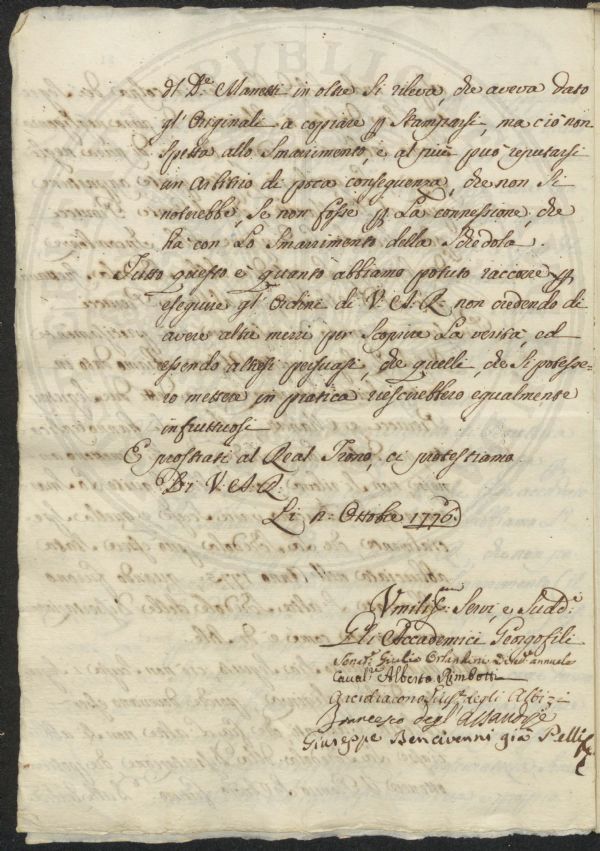 Dl D.e Manetti in oltre si rileva, che aveva dato
gl'Originali a copiare p Stamparsi, ma ciò non
spetta allo Smarrimento, e al più può reputarsi
un arbitrio di poca conseguenza, che non si
noterebbe, se non fosse p La connessione, che
ha con Lo Smarrimento della Schedola.
Tutto questo e quanto abbiamo potuto raccorre p
eseguire gl'Ordini di V: A: R: non credendo di
avere altri mezzi per scoprire La verità, ed
essendo altresì persuasi, che quelli, che si potesse-
ro mettere in pratica riescirebbero egualmente
infruttuosi
E prostrati al Real Trono, ci protestiamo.
Di V: A: R:
Li Ottobre 1776.
Umiliss.mi Servi, e Sudd.i
Gli Accademici Georgofili
Senat.e Giulio Orlandini annuale
Caval.re Alberto Rimbotti
Arcidiacono degli Albizi
Francesco degl'Alessandri
Giuseppe Bencivenni già Pelli